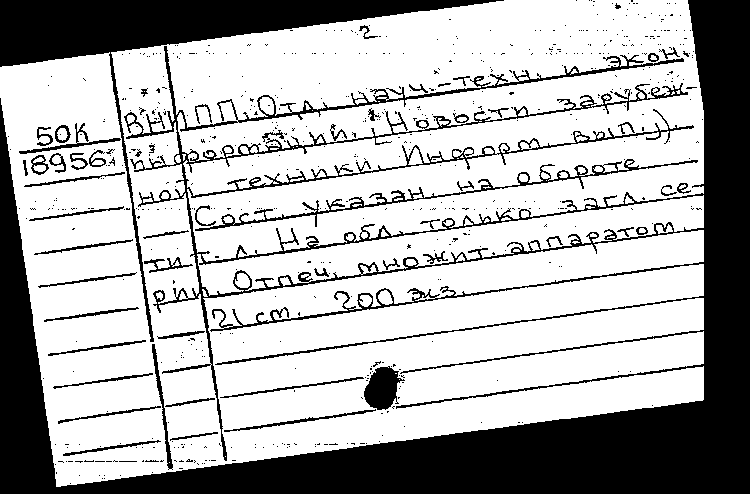 2
50К
18956
ВНИПП. Отд. науч.-техн. и экон.
информации. [Новости зарубеж-
ной техники. Информ. вып.]).
Сост. указан. на обороте
тит. л. На обл. только загл. се-
рии. Отпеч. множит. аппаратом.
21 см. 200 экз.